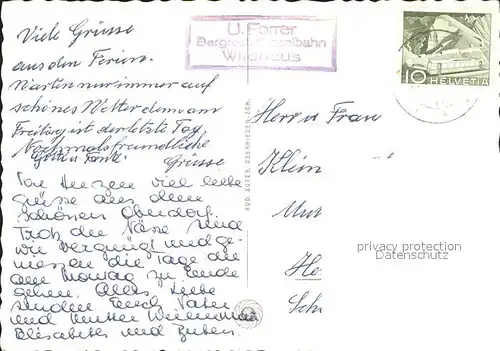 Viele Grüsse
aus den Ferien.
Warten nur immer auf
schönes Wetter denn am
Freitag ist der letzte Tag.
Nochmals freundliche
Grüsse
Von Herzen viel liebe
grüsse aus dem
schönen Oberdorf.
Trotz der Nässe sind
wir vergnügt und ge-
niessen die Tage die
am Montag zu Ende
gehen. Alles Liebe
senden Euch Vater
und Mutter
Elisabeth und
U. Forrer
Bergrest. Sesselbahn
Wildhaus
10 HELVETIA
RUD. SUTER, OBERRIEDEN-ZCH.
Herr u Frau
Klein
He
Sch
privacy protection
Datenschutz